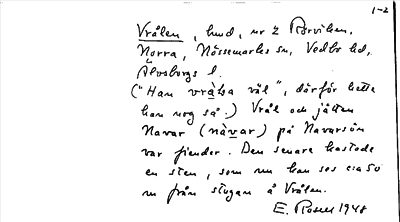 1-2
Vrålen, lund, nr 2 Rörviken,
Norra, Nössemarks sn, Vedbo hd,
Älvsborgs l.
("Han vrålsa väl", därför hette
han nog så.) Vrål och jätten
Navar (nàvar) på Navarsön
var fiender. Den senare kastade
en sten, som nu kan ses ca 50
m från stugan å Vrålen.
E. Rosell 1948